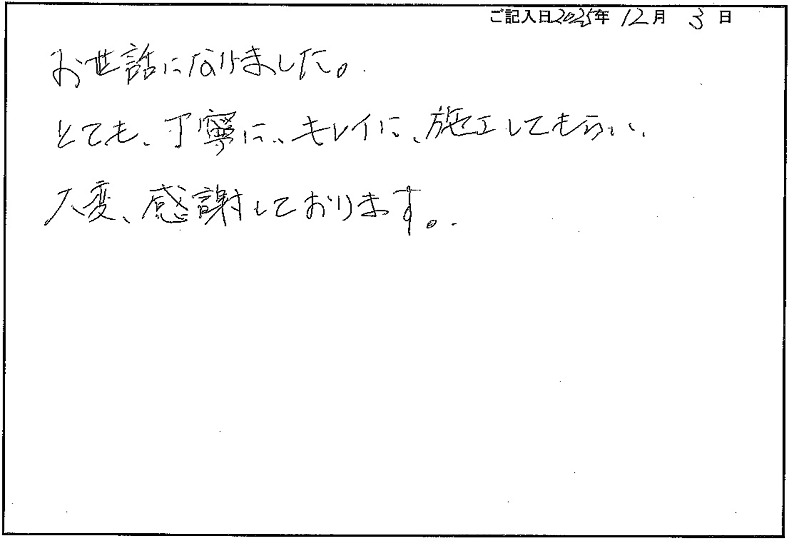 ご記入日2025年 12月 3日
お世話になりました。
とても、丁寧に、キレイに、施工してもらい、
大変、感謝しております。